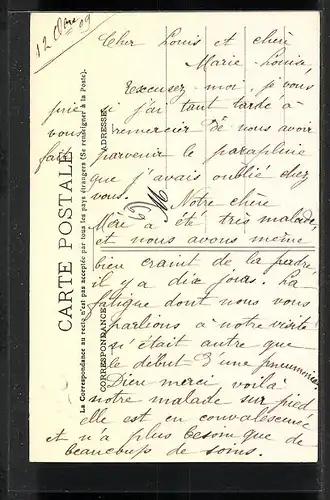 12 8bre 09
Cher Louis et chère
Marie-Louise,
Excusez-moi, je vous
prie si j'ai tant tardé à
vous remercier de nous avoir
fait parvenir le parapluie
que j'avais oublié chez
vous. Notre chère
Mère a été très malade,
et nous avons même
bien craint de la perdre,
il y a dix jours. La
fatigue dont nous vous
parlions à notre visite
n'était autre que
le début d'une pneumonie.
Dieu merci voilà
notre malade sur pied
elle est en convalescence
et n'a plus besoin que de
beaucoup de soins.
CARTE POSTALE
La Correspondance au recto n'est pas acceptée par tous les pays étrangers (Se renseigner à la Poste).
CORRESPONDANCE
ADRESSE